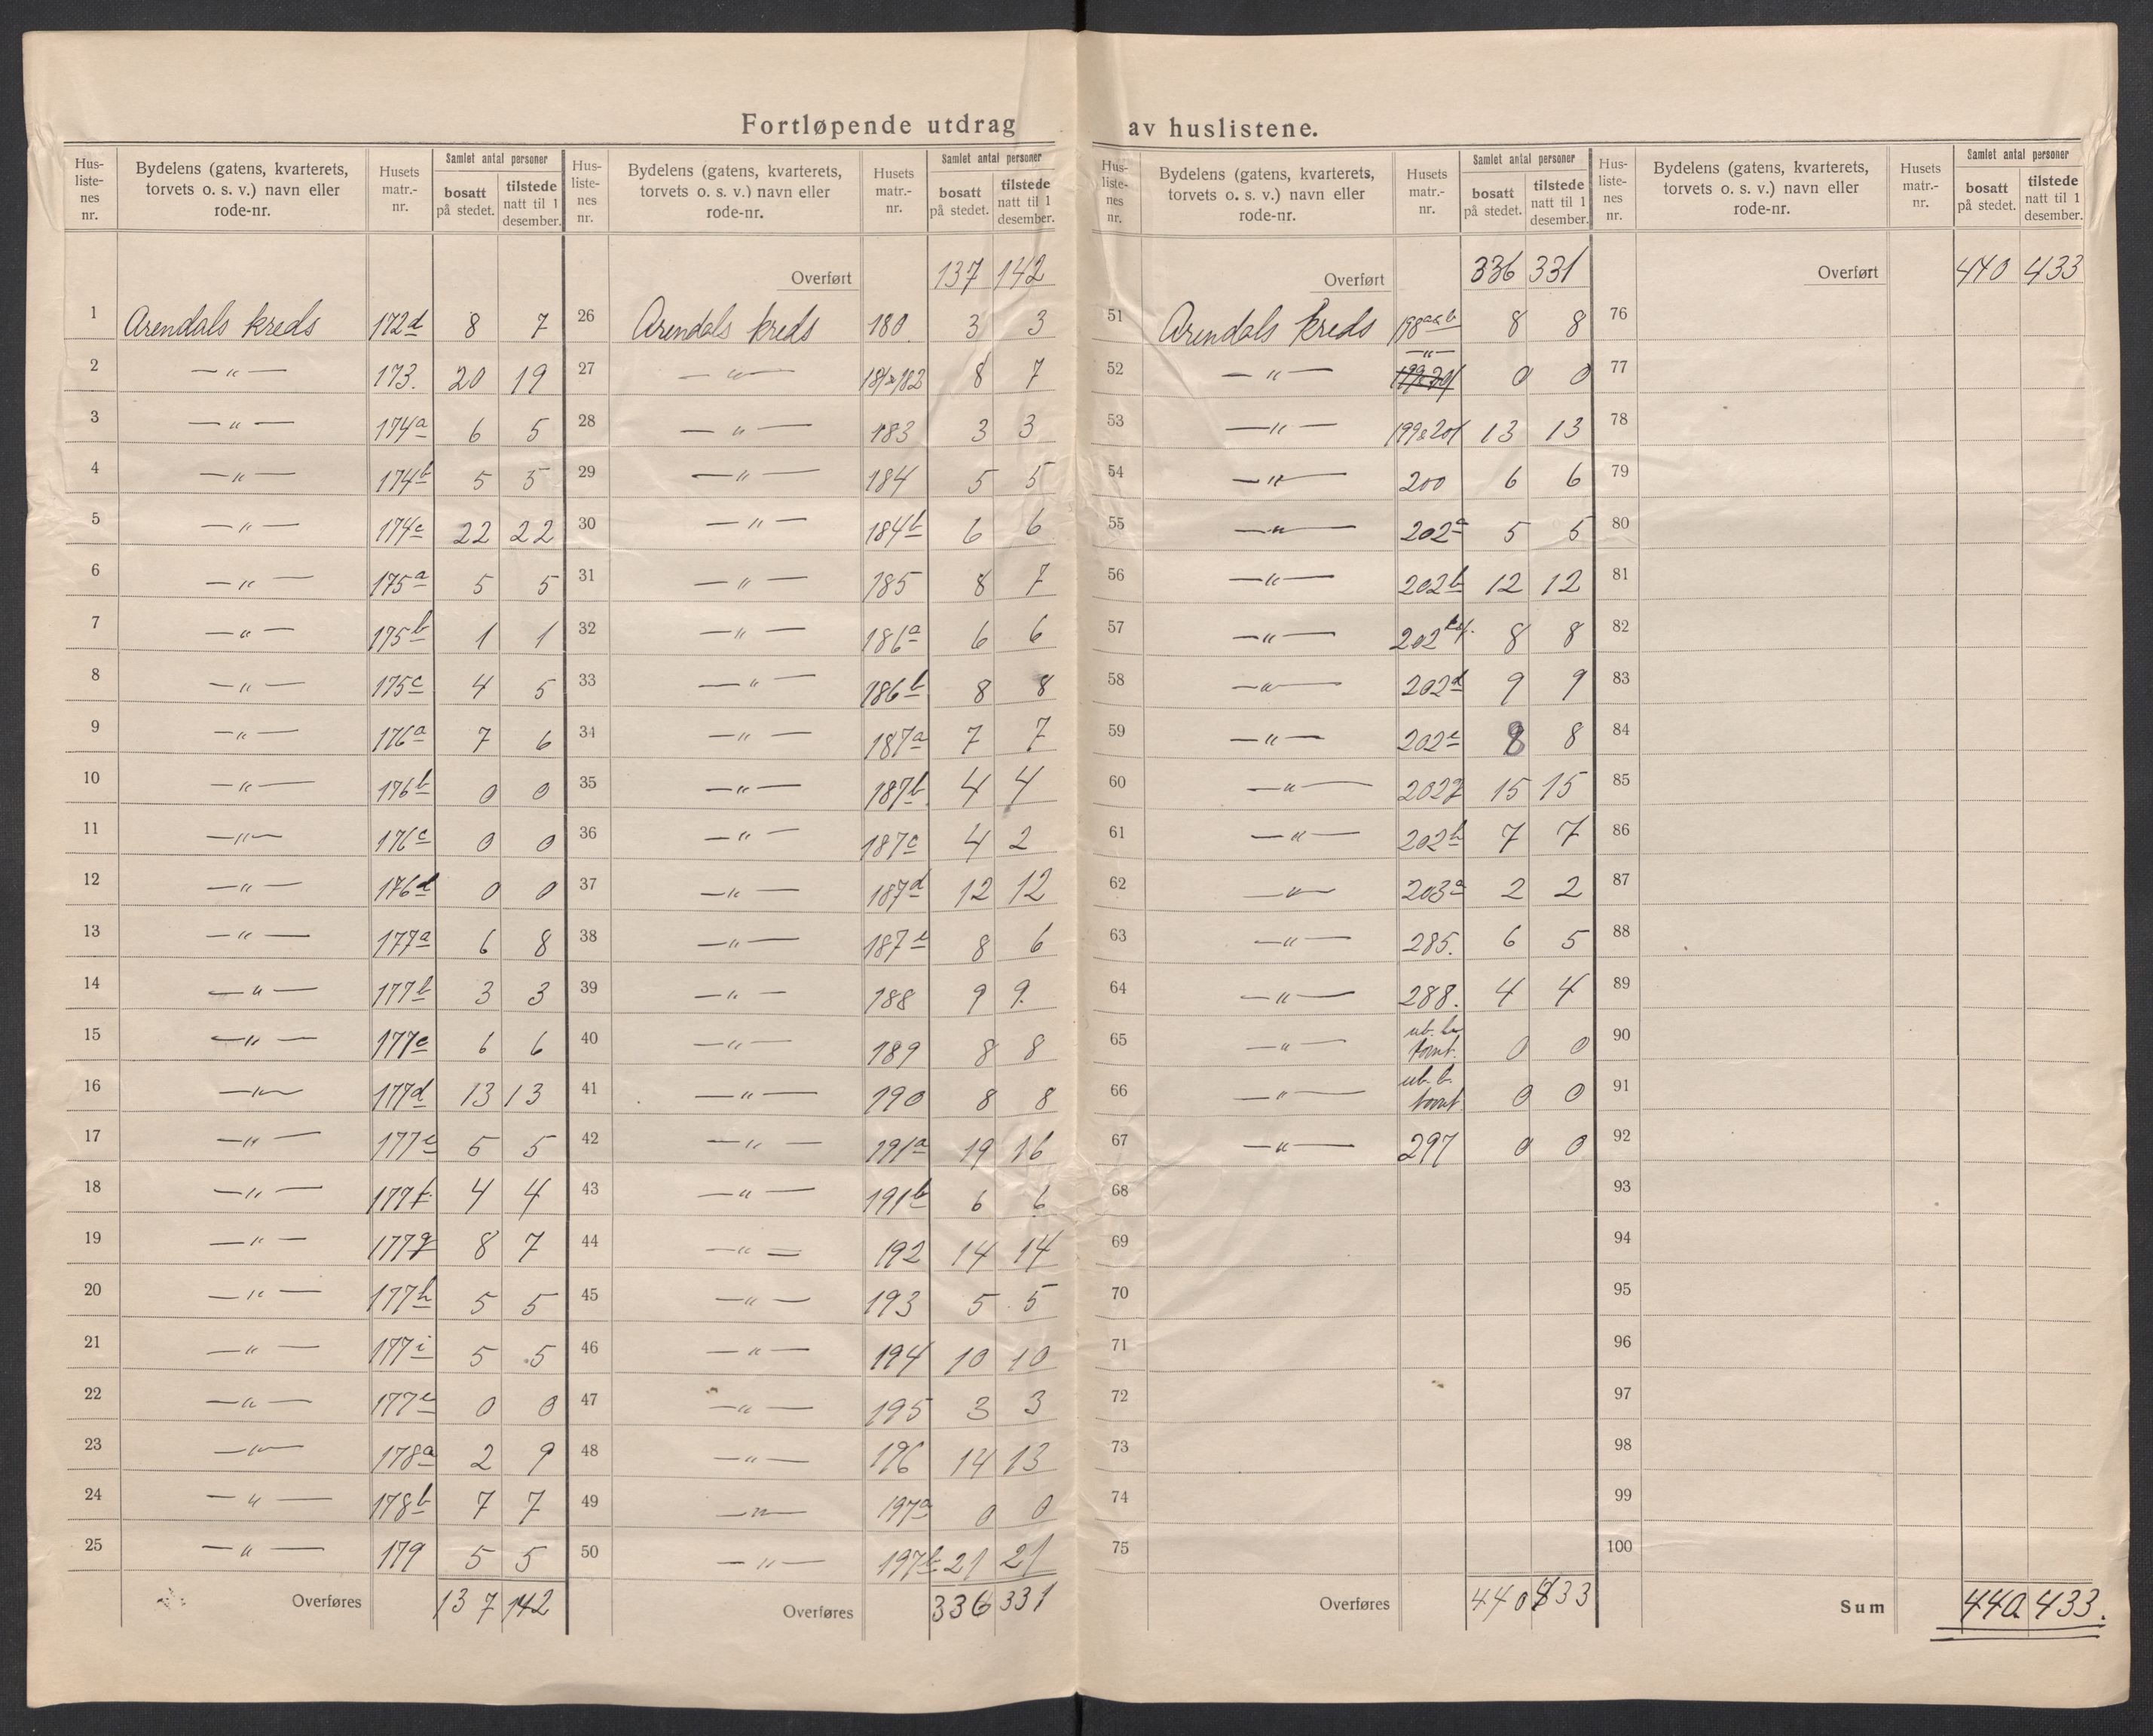 Fortløpende utdrag av huslistene.
Hus-listenes nr. | Bydelens (gatens, kvarterets, torvets o. s. v.) navn eller rode-nr. | Husets matr.-nr. | Samlet antal personer | bosatt på stedet. | tilstede natt til 1 desember.
1 Arendals kreds 172d 8 7
2 —"— 173. 20 19
3 —"— 174a 6 5
4 —"— 174b 5 5
5 —"— 174c 22 22
6 —"— 175a 5 5
7 —"— 175b 1 1
8 —"— 175c 4 5
9 —"— 176a 7 6
10 —"— 176b 0 0
11 —"— 176c 0 0
12 —"— 176d 0 0
13 —"— 177a 6 8
14 —"— 177b 3 3
15 —"— 177c 6 6
16 —"— 177d 13 13
17 —"— 177e 5 5
18 —"— 177f 4 4
19 —"— 177g 8 7
20 —"— 177h 5 5
21 —"— 177i 5 5
22 —"— 0 0
23 —"— 178a 2 9
24 —"— 178b 7 7
25 —"— 179 5 5
Overføres 137 142
Hus-listenes nr. | Bydelens (gatens, kvarterets, torvets o. s. v.) navn eller rode-nr. | Husets matr.-nr. | Samlet antal personer | bosatt på stedet. | tilstede natt til 1 desember.
Overført 137 142
26 Arendals kreds 180 3 3
27 —"— 181&182 8 7
28 —"— 183 3 3
29 —"— 184 5 5
30 —"— 184b 6 6
31 —"— 185 8 7
32 —"— 186a 6 6
33 —"— 186b 8 8
34 —"— 187a 7 7
35 —"— 187b 4 4
36 —"— 187c 4 2
37 —"— 187d 12 12
38 —"— 187e 8 6
39 —"— 188 9 9.
40 —"— 189 8 8
41 —"— 190 8 8
42 —"— 191a 19 16
43 —"— 191b 6 6
44 —"— 192 14 14
45 —"— 193 5 5
46 —"— 194 10 10
47 —"— 195 3 3
48 —"— 196 14 13
49 —"— 197a 0 0
50 —"— 197b 21 21
Overføres 336 331
Hus-listenes nr. | Bydelens (gatens, kvarterets, torvets o. s. v.) navn eller rode-nr. | Husets matr.-nr. | Samlet antal personer | bosatt på stedet. | tilstede natt til 1 desember.
Overført 336 331
51 Arendals kreds 198a&b 8 8
52 —"— —"— 0 0
53 —"— 199&201 13 13
54 —"— 200 6 6
55 —"— 202a 5 5
56 —"— 202b 12 12
57 —"— 202 8 8
58 —"— 202d 9 9
59 —"— 202e 8 8
60 —"— 202g 15 15
61 —"— 202h 7 7
62 —"— 203a 2 2
63 —"— 285. 6 5
64 —"— 288. 4 4
65 —"— ub. tomt. 0 0
66 —"— ub. b. tomt. 0 0
67 —"— 297 0 0
68
69
70
71
72
73
74
75
Overføres 440 433
Hus-listenes nr. | Bydelens (gatens, kvarterets, torvets o. s. v.) navn eller rode-nr. | Husets matr.-nr. | Samlet antal personer | bosatt på stedet. | tilstede natt til 1 desember.
Overført 440 433
76
77
78
79
80
81
82
83
84
85
86
87
88
89
90
91
92
93
94
95
96
97
98
99
100
Sum 440 433.